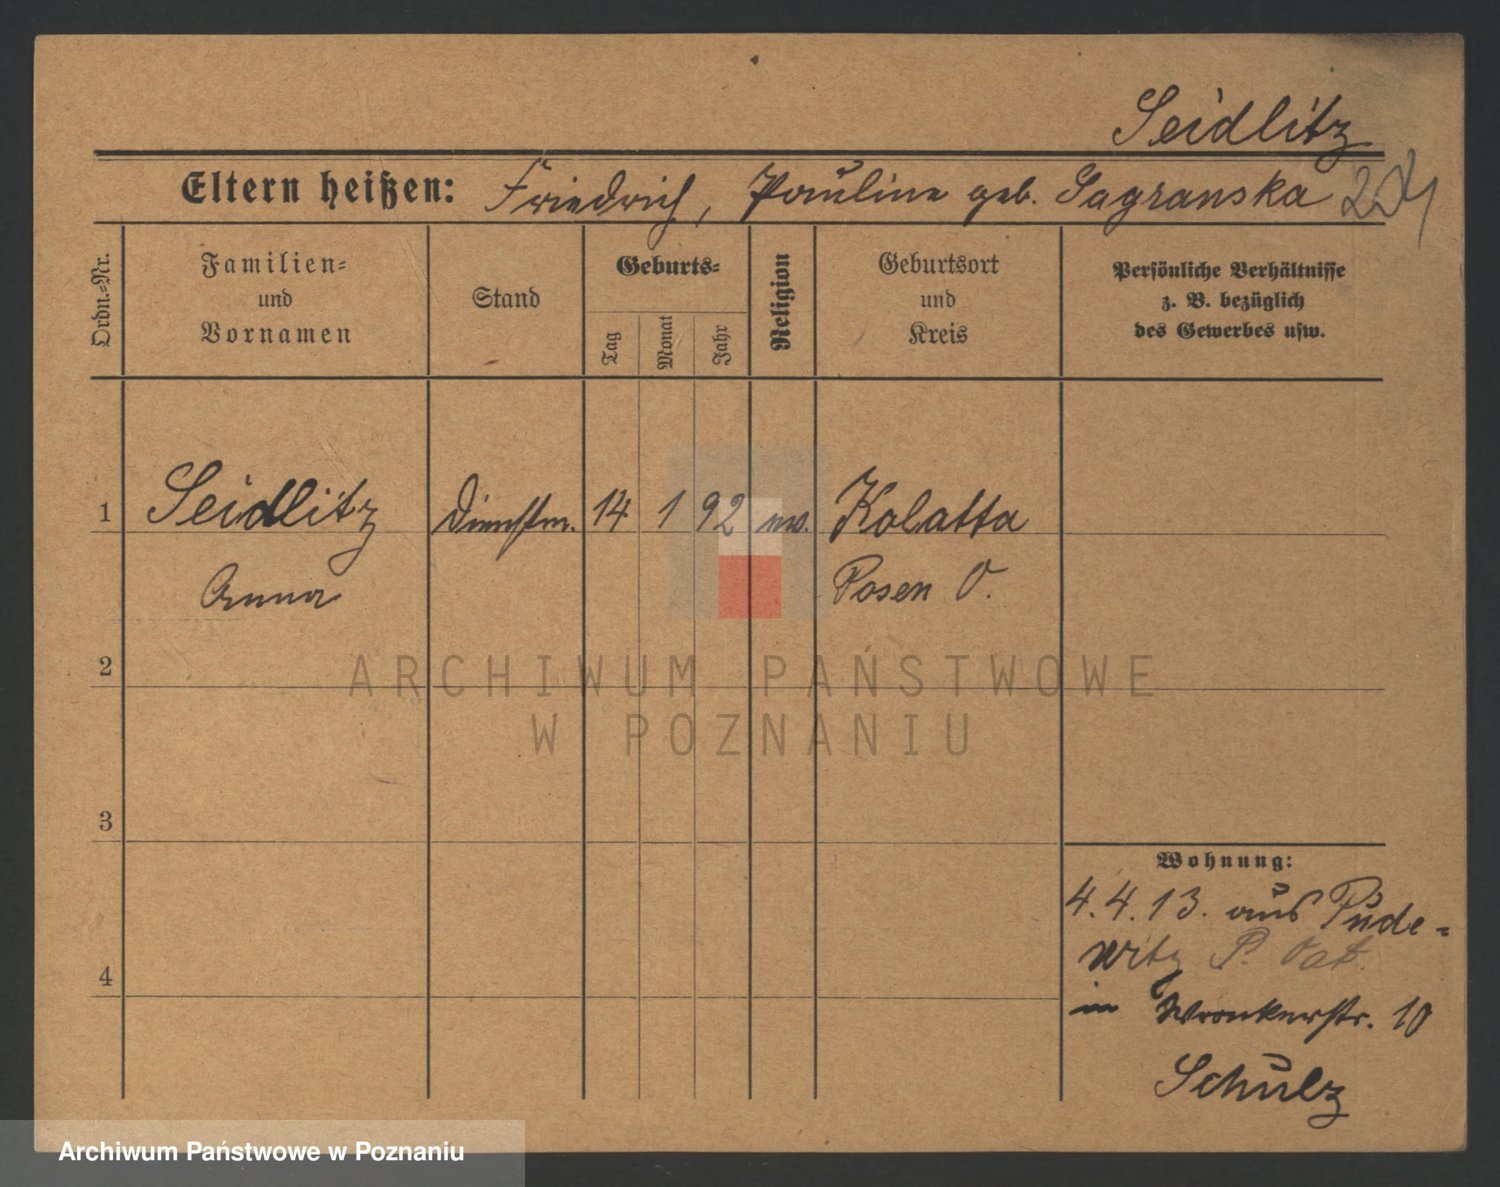 Seidlitz
Eltern heißen: Friedrich, Pauline geb. Sagranska
Ordn.-Nr.
Familien-
und
Vornamen
Stand
Geburts-
Tag
Monat
Jahr
Religion
Geburtsort
und
Kreis
Persönliche Verhältnisse
z. B. bezüglich
des Gewerbes usw.
1 Seidlitz Dienstm. 14 1 92 ev. Kolatta
Anna Posen O.
2
3
4
Wohnung:
4.4.13. aus Pude-
witz P.
in Wronkerstr. 10
Schulz
ARCHIWUM PAŃSTWOWE
W POZNANIU
Archiwum Państwowe w Poznaniu